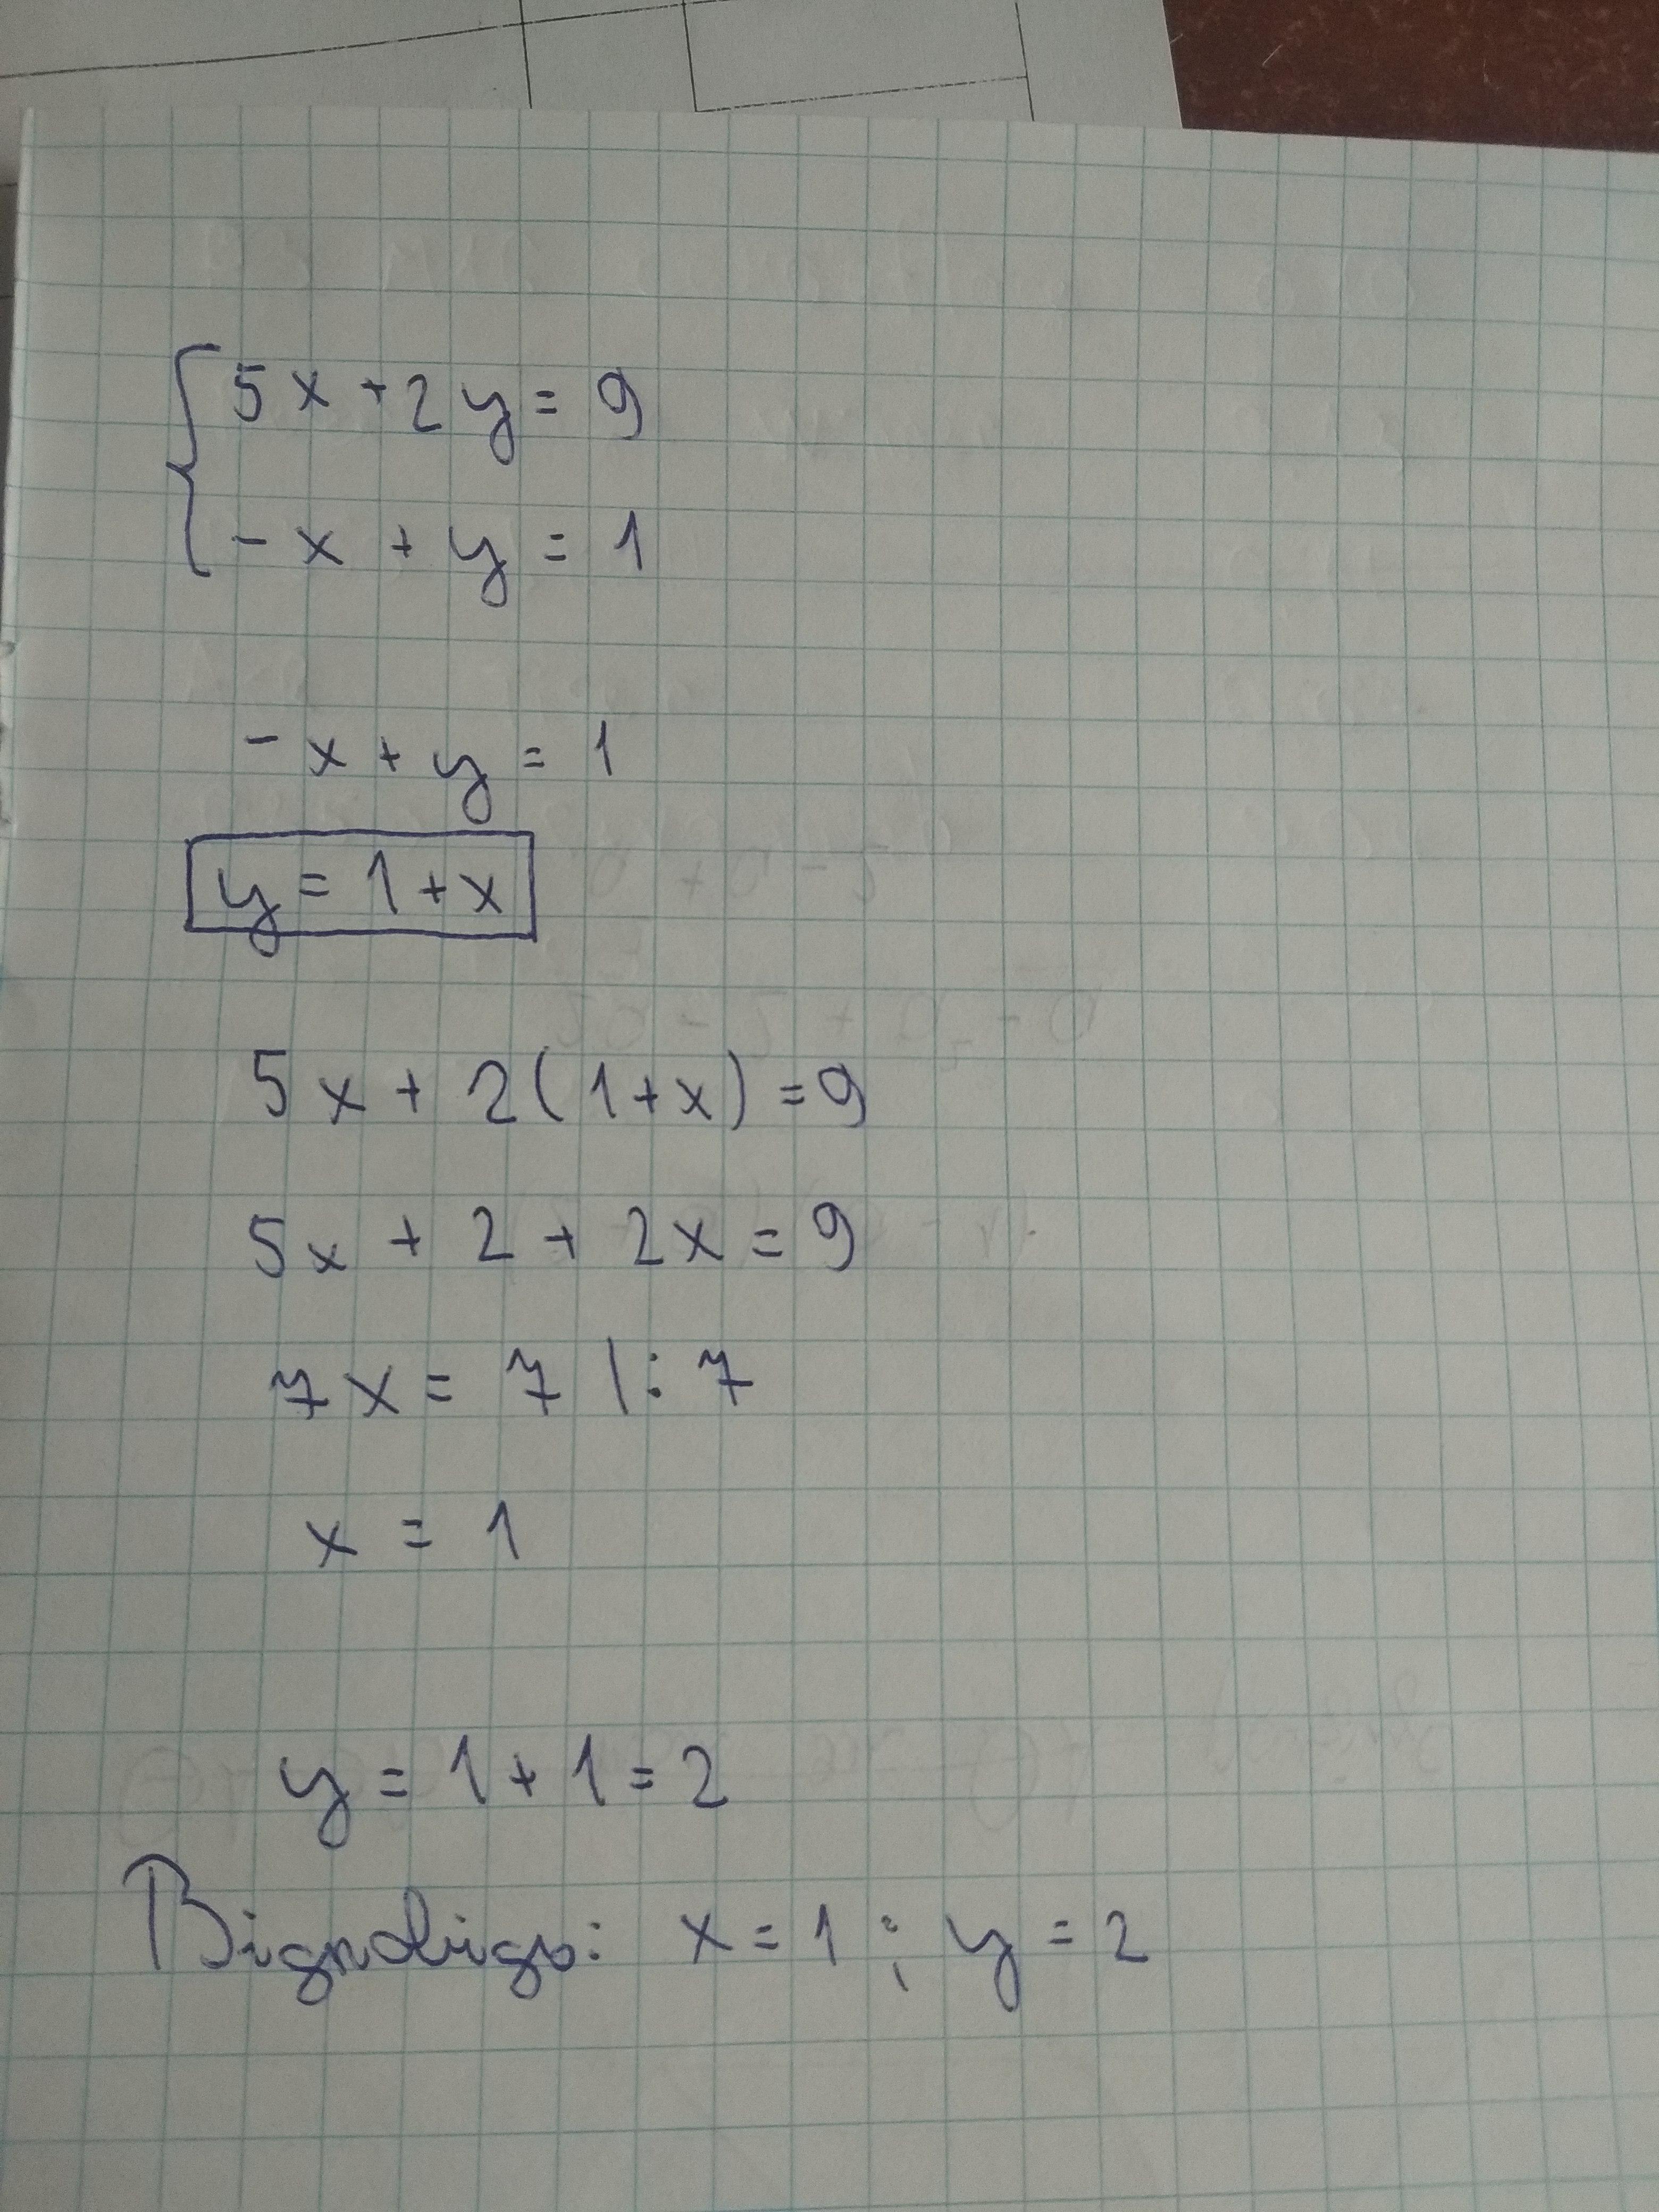 5x + 2y = 9
- x + y = 1
- x + y = 1
y = 1 + x
5x + 2(1 + x) = 9
5x + 2 + 2x = 9
7x = 7 |: 7
x = 1
y = 1 + 1 = 2
Відповідь: x = 1 ; y = 2